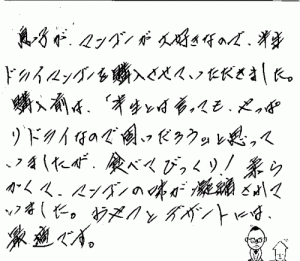 息子が、マンゴーが大好きなので、半生
ドライマンゴーを購入させていただきました。
購入前は、「半生とは言っても、やっぱ
りドライなので固いだろう」と思って
いましたが、食べてびっくり！柔ら
かくて、マンゴーの味が凝縮されて
いました。おやつとデザートには、
最適です。